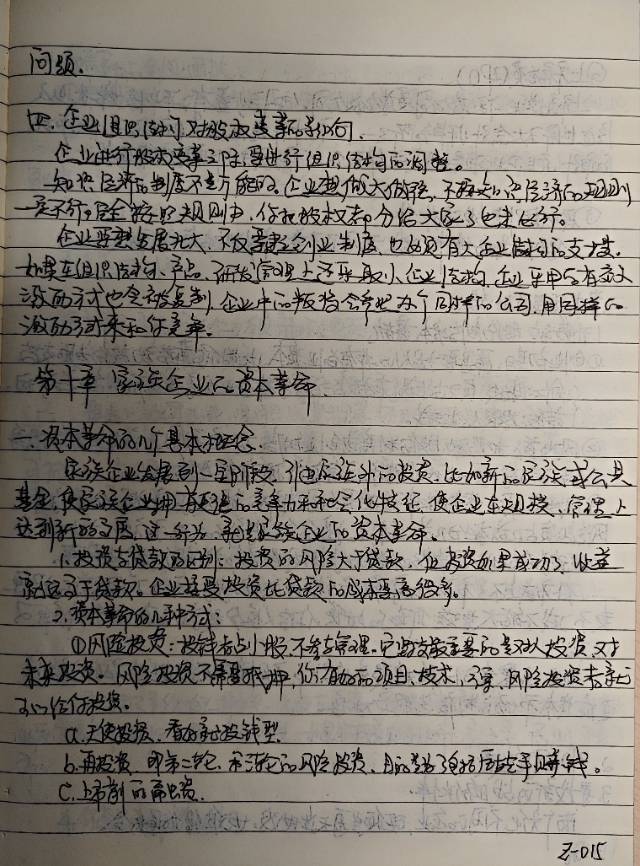 问题.
四.企业组织结构对股权变革的影响.
企业进行股权变革之际,要进行组织结构的调整。
知识经济的制度不是万能的,企业要做大做强,不按知识经济的规则
一定不行,完全按规则办,你把股权都分给大家了也未必行。
企业要想发展壮大,不仅需要创业制度,也必须有大企业结构的支撑。
如果在组织结构、产品、研发管理上还采取小企业结构,企业采用的有效
激励方式也会被复制,企业中的骨干会变为个同样的公司,用同样的
激励方式来和你竞争。
第十章 家族企业的资本革命.
一.资本革命的几个基本概念.
家族企业发展到一定阶段,引进家族外的投资,比如新的家族或公共
基金,使家族企业拥有更强的竞争力和社会化特征,使企业在规模、管理上
达到新的高度,这一行为,就是家族企业的资本革命。
1.投资与贷款的区别:投资的风险大于贷款,但投资如果成功了,收益
就远高于贷款。企业接受投资比贷款的成本要高得多。
2.资本革命的几种方式:
①风险投资:投钱占小股,不参与管理。它最主要的是对人投资,对
未来投资。风险投资不需要抵押,你有好的项目、技术、方案,风险投资者就
可以给你投资。
a.天使投资,看好就投钱型.
b.再投资,即第二轮、第三轮的风险投资,
c.上市前的融资.
Z-015